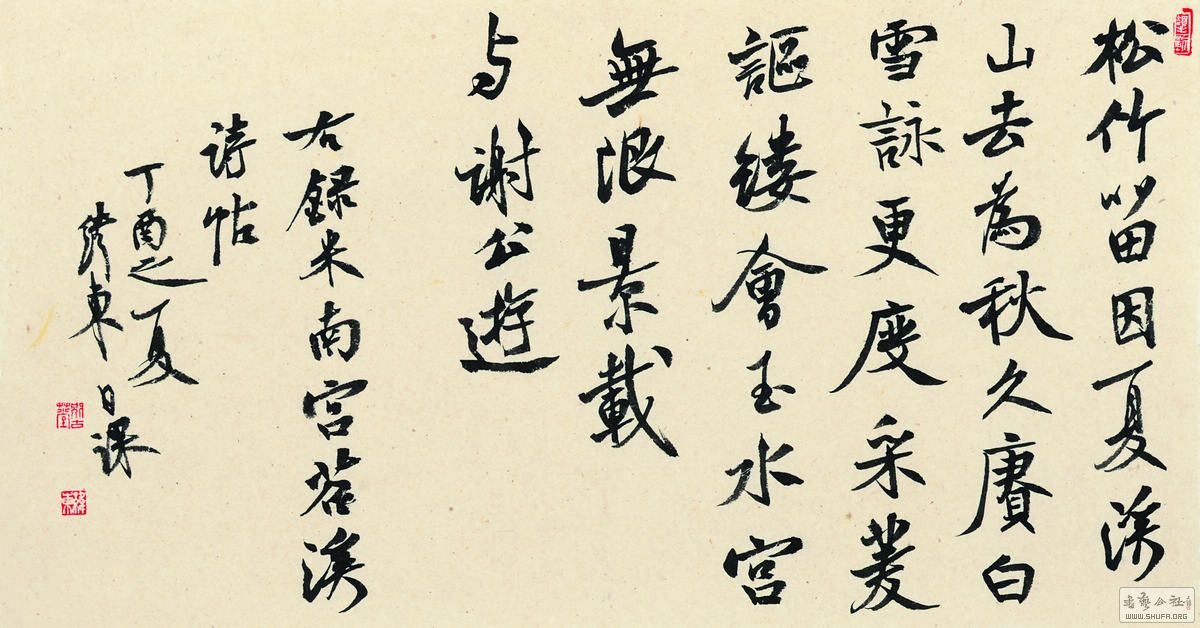 松竹留因夏溪
山去為秋久賡白
雪詠更度采菱
謳縷會玉水宮
無限景載
与謝公遊
右録米南宮苕溪
诗帖
丁酉之夏
東日课
書藝公社
WWW.SHUFA.ORG